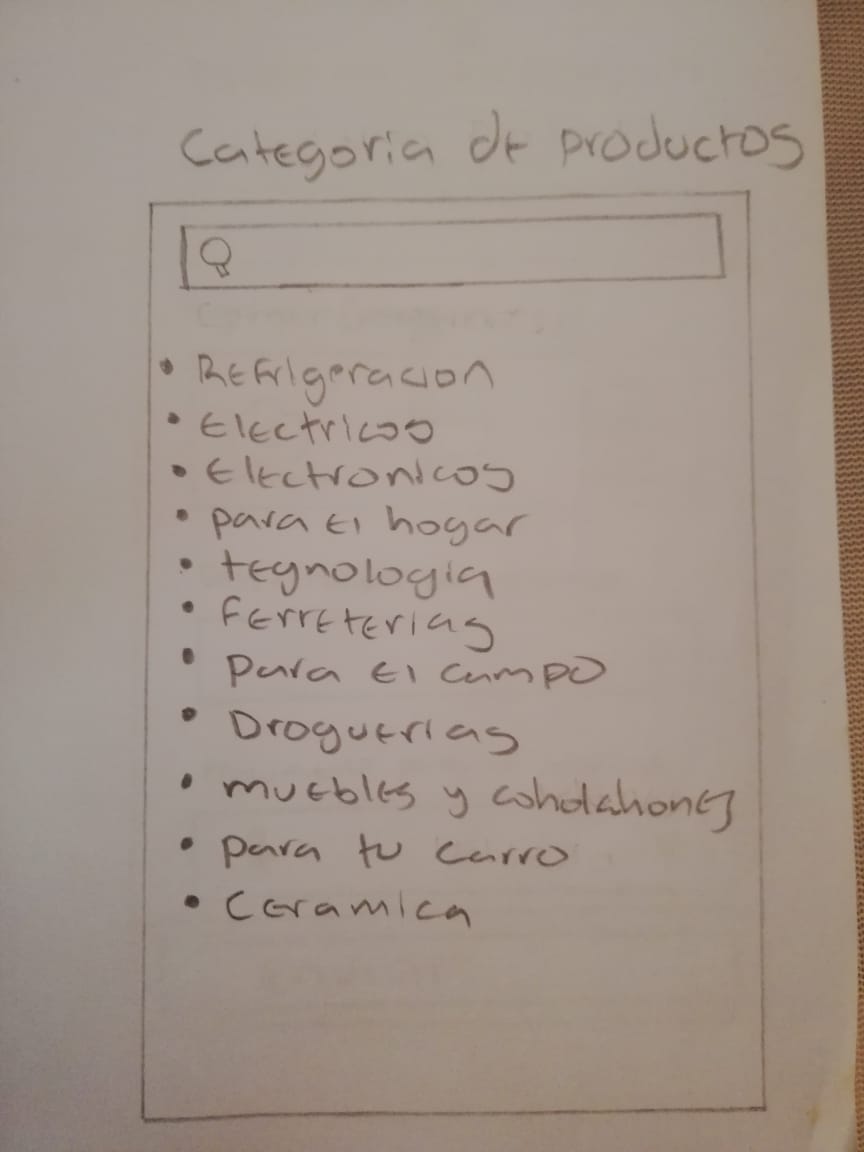 Categoria de productos
• Refrigeracion
• Electricos
• Electronicos
• para el hogar
• tegnologia
• Ferreterias
• para el campo
• Droguerias
• muebles y coholahones
• para tu carro
• Ceramica